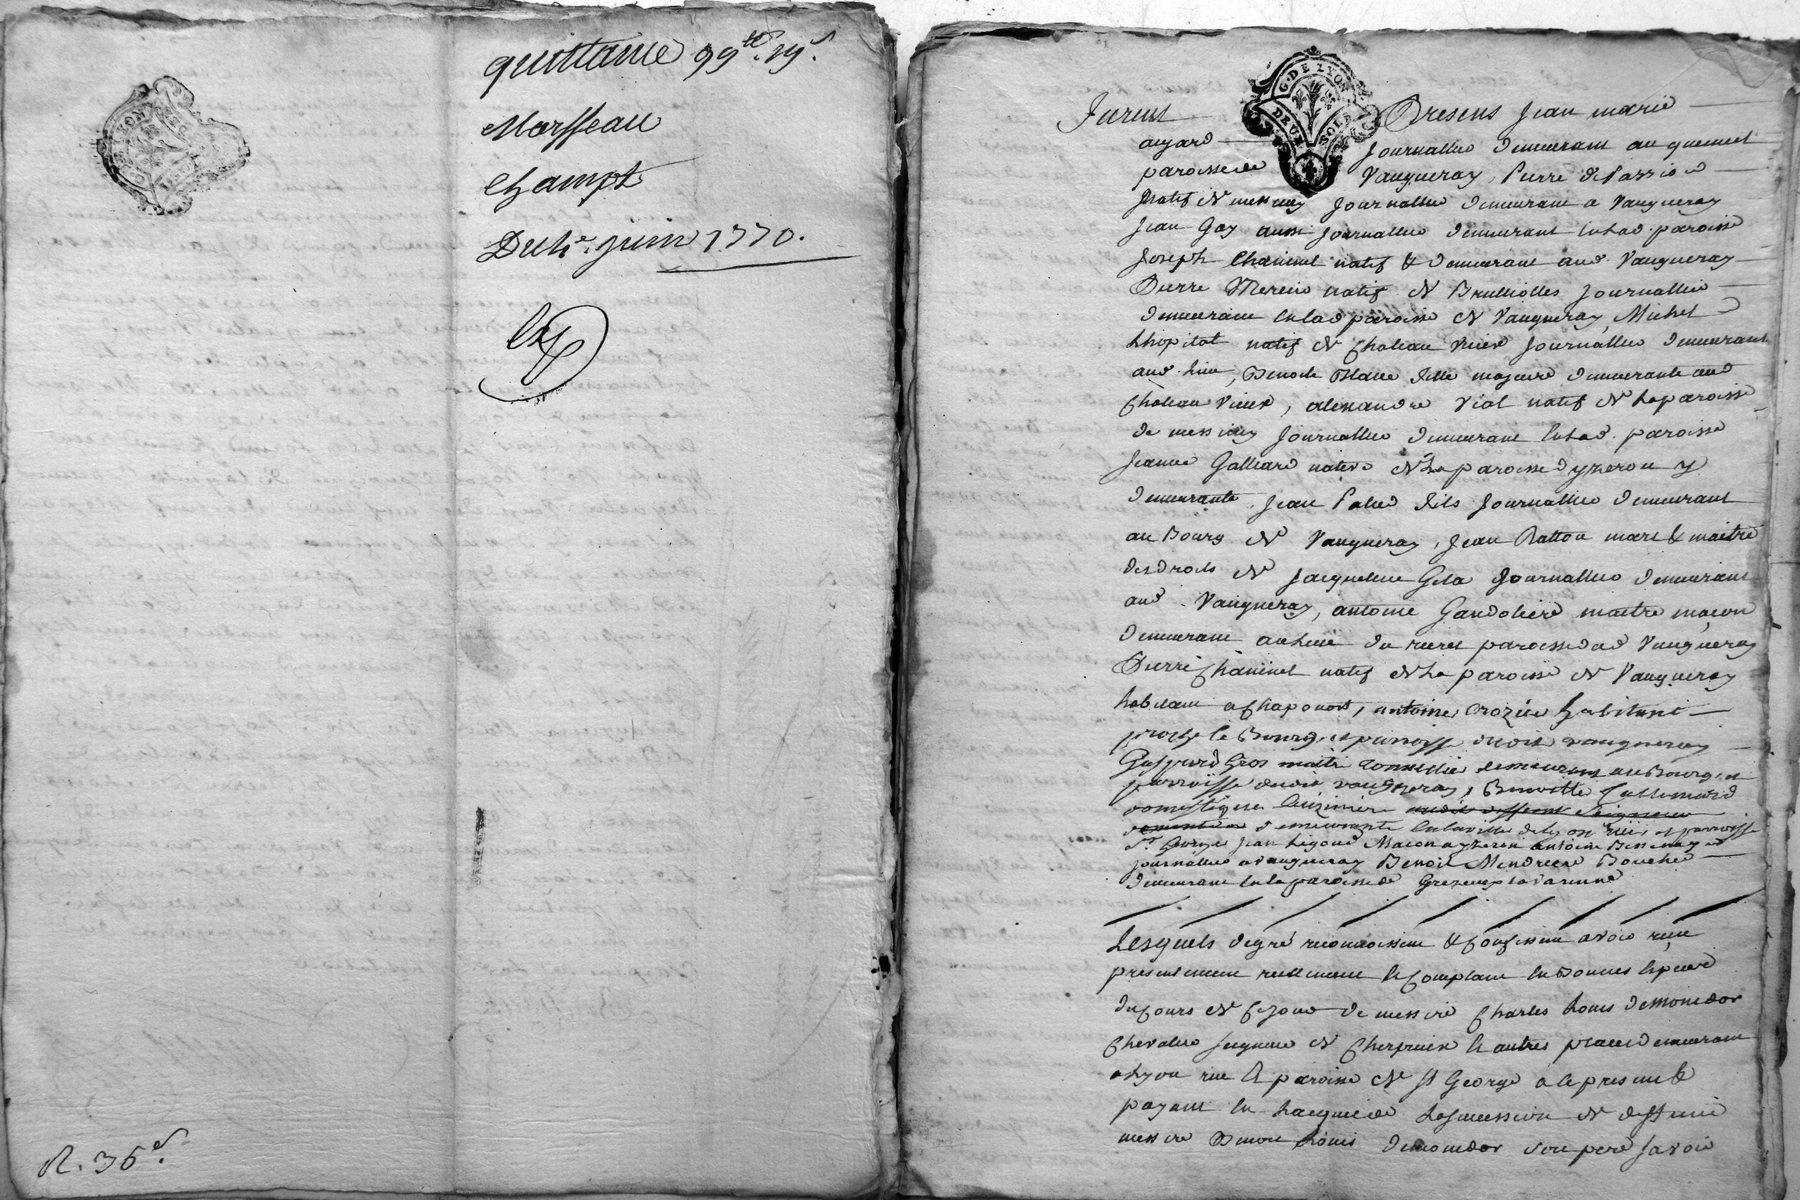 quittance 99tt. 19s.
Morsseau
Champt
Du 4e. juin 1770.
R. 36s.
G. DE LYON
DEUX SOLS
Furent Presens Jean marie
aygard Journallier demeurant au quemet
paroisse de Vaugneray, Pierre de Lazzio
Natif de messimy Journallier demeurant a Vaugneray
Jean Gay aussi Journallier demeurant en lad. paroisse
Joseph Chaninel natif & demeurant aud Vaugneray
Pierre Mercie natif de Brulliolles Journallier
demeurant en lad paroisse de Vaugneray, Michel
Lhopital natif de Chateau vieux Journallier demeurant
aud. lieu, Benoite Blanc fille majeure demeurante aud
Chateau vieux, alexandre Vial natif de la paroisse
de messimy Journallier demeurant en lad. paroisse
Jeanne Galliard native de la paroisse dyzeron y
demeurante, Jean Palud fils Journallier demeurant
au Bourg de Vaugneray, Jean Ratton mary & maitre
des droits de Jacqueline Gela Journallier demeurant
aud. Vaugneray, antoine Gandoliere maitre maçon
demeurant au lieu du recret paroisse dud Vaugneray
Pierre Chaninel natif de la paroisse de Vaugneray
habitant a Chaponost, antoine Crozier habitant
proche le Bourg et parroisse dudit vaugneray
Gaspard Gros maitre demeurant au Bourg et
parroisse dudit vaugneray, Benoitte Jallemard
domestique demeurante en la ville de Lyon rüe et parroisse
St. Georges Jean Macon a yzeron antoine Bissenay
journallier a vaugneray Benoit Mendrier Boucher
demeurant en la paroisse de Grezieu la Varenne
Lesquels de gré reconnoissent & confessent avoir reçu
presentement reellement & comptant en bonnes especes
du cours de ce jour de messire Charles Louis demonidor
Chevalier seigneur de & autres places demeurant
a Lyon rue & paroisse de St George a ce present &
payant en l'acquit de la succession de deffunt
messire Louis demonidor son pere savoir